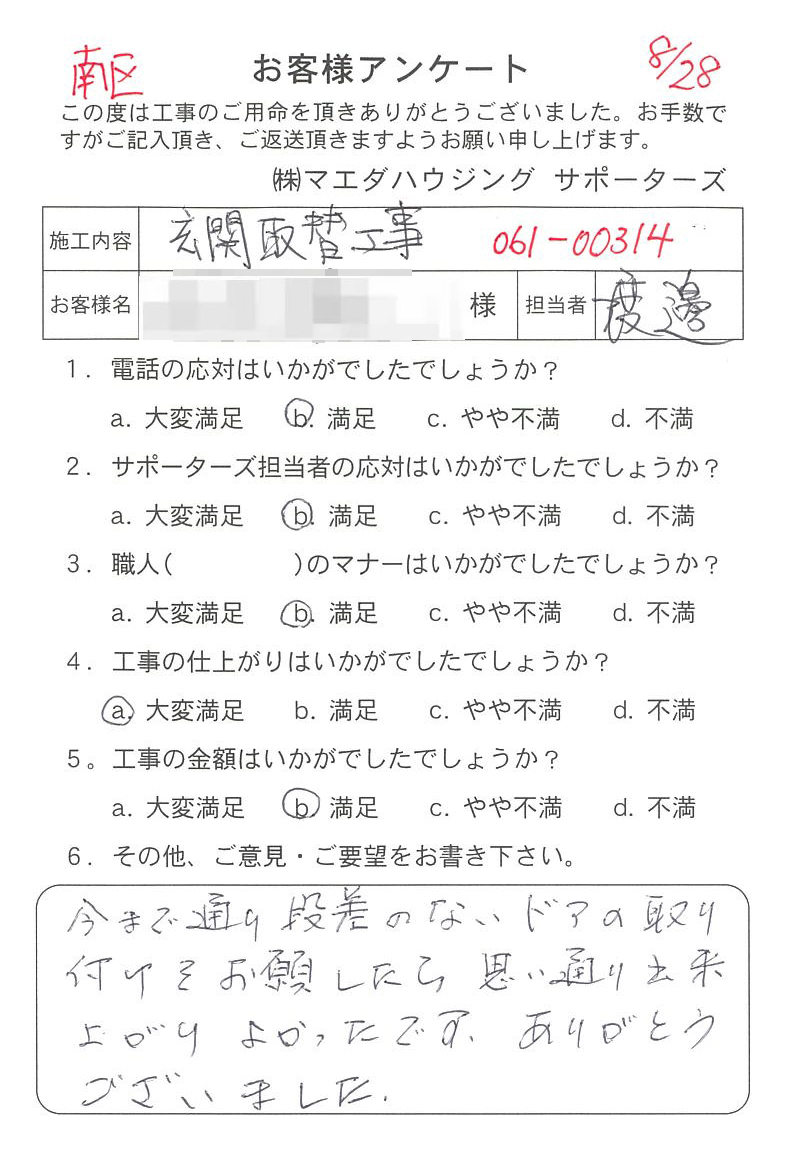 南区 お客様アンケート 8/28
この度は工事のご用命を頂きありがとうございました。お手数で
すがご記入頂き、ご返送頂きますようお願い申し上げます。
㈱マエダハウジング サポーターズ
施工内容 玄関取替工事 061-00314
お客様名 様 担当者 渡邊
1. 電話の応対はいかがでしたでしょうか?
a. 大変満足 b. 満足 c. やや不満 d. 不満
2. サポーターズ担当者の応対はいかがでしたでしょうか?
a. 大変満足 b. 満足 c. やや不満 d. 不満
3. 職人( )のマナーはいかがでしたでしょうか?
a. 大変満足 b. 満足 c. やや不満 d. 不満
4. 工事の仕上がりはいかがでしたでしょうか?
a. 大変満足 b. 満足 c. やや不満 d. 不満
5。工事の金額はいかがでしたでしょうか?
a. 大変満足 b. 満足 c. やや不満 d. 不満
6. その他、ご意見・ご要望をお書き下さい。
今まで通り段差のないドアの取り
付けをお願したら思い通り出来
上がりよかったです。ありがとう
ございました.